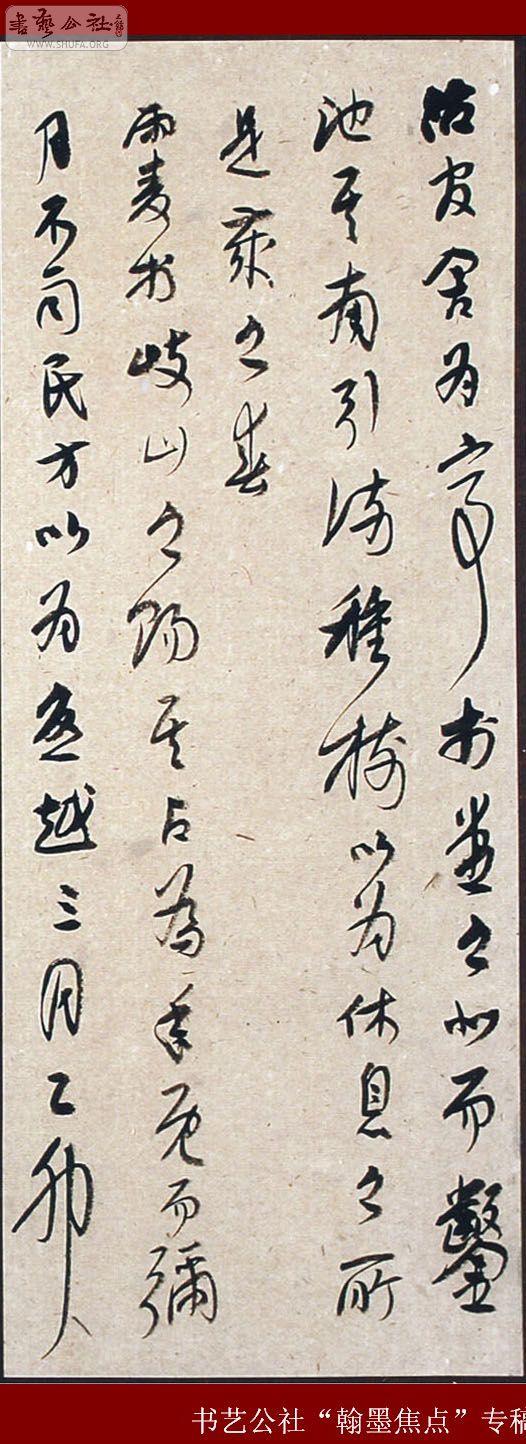 書藝公社
WWW.SHUFA.ORG
治官舍为亭於堂之北而鑿
池其南引流種樹以为休息之所
是歲之春
雨麥於岐山之陽其占為年既而彌
月不雨民方以为憂越三月乙卯
书艺公社“翰墨焦点”专稿